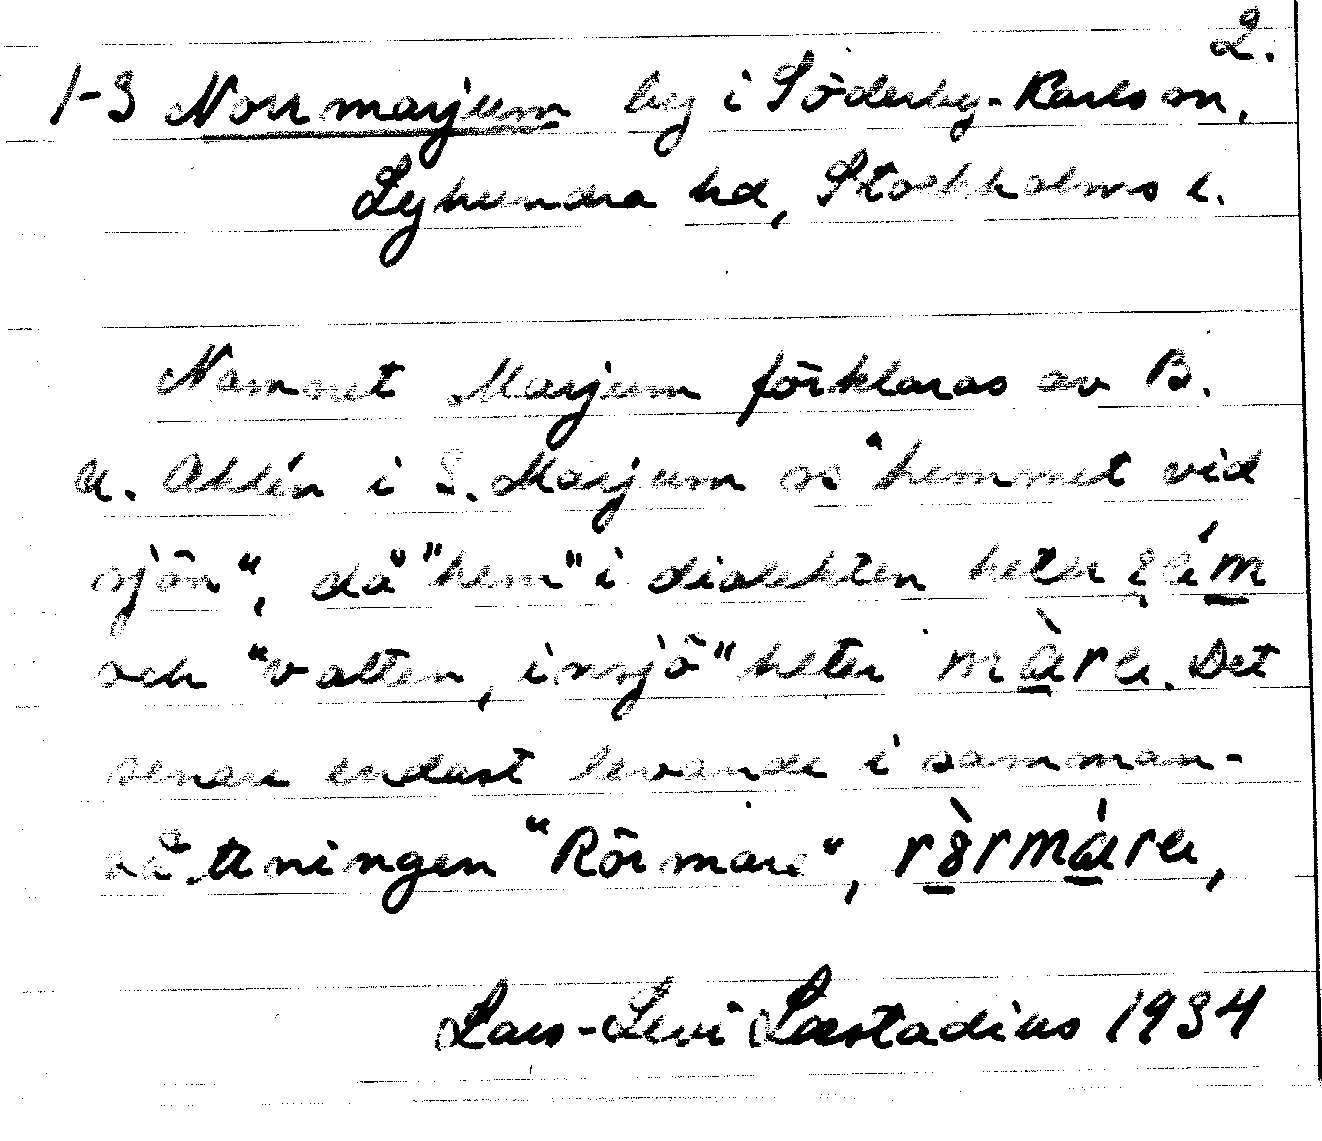 2.
1-3 Norrmarjum by i Söderby-Karlson,
Lyhundra hd, Stockholms l.
Namnet Marjum förklaras av B.
U. Ahlén i S. Marjum ss "hemmet vid
sjön", då "hem" i dialekten heter
och "vatten, insjö" heter màra. Det
senare endast levande i samman-
sättningen "Rörmare",
Lars-Levi Læstadius 1934